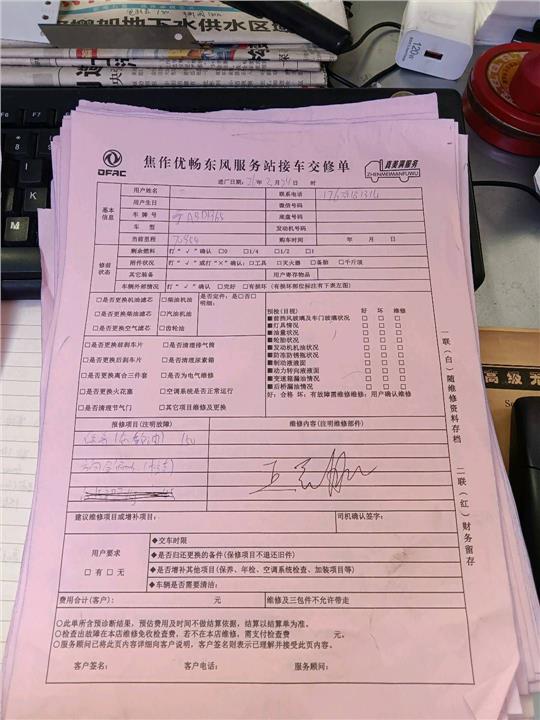 增加地下水供水区
120W
F6 F7
DFAC
焦作优畅东风服务站接车交修单
真美满服务
ZHENMEIMANFUWU
进厂日期: 年 月 日 时
基本信息
用户姓名 联系电话
用户生日 微信号码
车牌号 底盘号
车型 发动机号
当前里程 购车时间 年 月 日
修前状态
剩余燃料 打“√”确认 □0 □1/4 □1/2 □1
附件状况 打“√”或打“×”确认:□工具 □灭火器 □备胎 □千斤顶
其它装备 用户寄存物品
车辆外部情况 打“√”确认 □完好 □有损坏(有损坏部位标注有下表左图)
□是否更换机油滤芯 □柴油机油 是否定件:是□否□
□是否更换柴油滤芯 □汽油机油 明细:
□是否更换空气滤芯 □齿轮油
□是否更换前刹车片 □是否清理排气筒
□是否更换后刹车片 □是否清理尿素箱
□是否更换离合三件套 □是否为电气维修
□是否更换火花塞 □空调系统是否正常运行
□是否清理节气门 □其它项目维修及更换
预检(目视) 好 坏 维修
■前挡风玻璃及车门玻璃状况 □ □ □
■灯具情况 □ □ □
■油量状况 □ □ □
■轮胎状况 □ □ □
■发动机机油状况 □ □ □
■防冻防锈液状况 □ □ □
■制动液液面 □ □ □
■动力转向液液面 □ □ □
■变速箱漏油情况 □ □ □
■后桥漏油情况 □ □ □
好:合格 坏:有故障需维修维修:用户确认维修
报修项目(注明故障) 维修内容(注明维修部件)
建议维修项目或增补项目: 司机确认签字:
用户要求
□有 □无
◆交车时限
◆是否归还更换的备件(保修项目不退还旧件)
◆是否增补其他项目(保养、年检、空调系统检查、加装项目等)
◆车辆是否需要清洁:
费用合计(客户): 元 维修及三包件不允许带走
○此单所含预诊断结果,预估费用及时间不做结算依据,结算以结算单为准。
○检查出故障在本店维修免收检查费,若不在本店维修,需支付检查费 元。
○服务顾问已将此页内容详细向客户说明,客户签名则表示已理解并接受此页内容。
客户签名: 客户电话: 服务顾问:
一联(白)随维修资料存档
二联(红)财务留存
高级